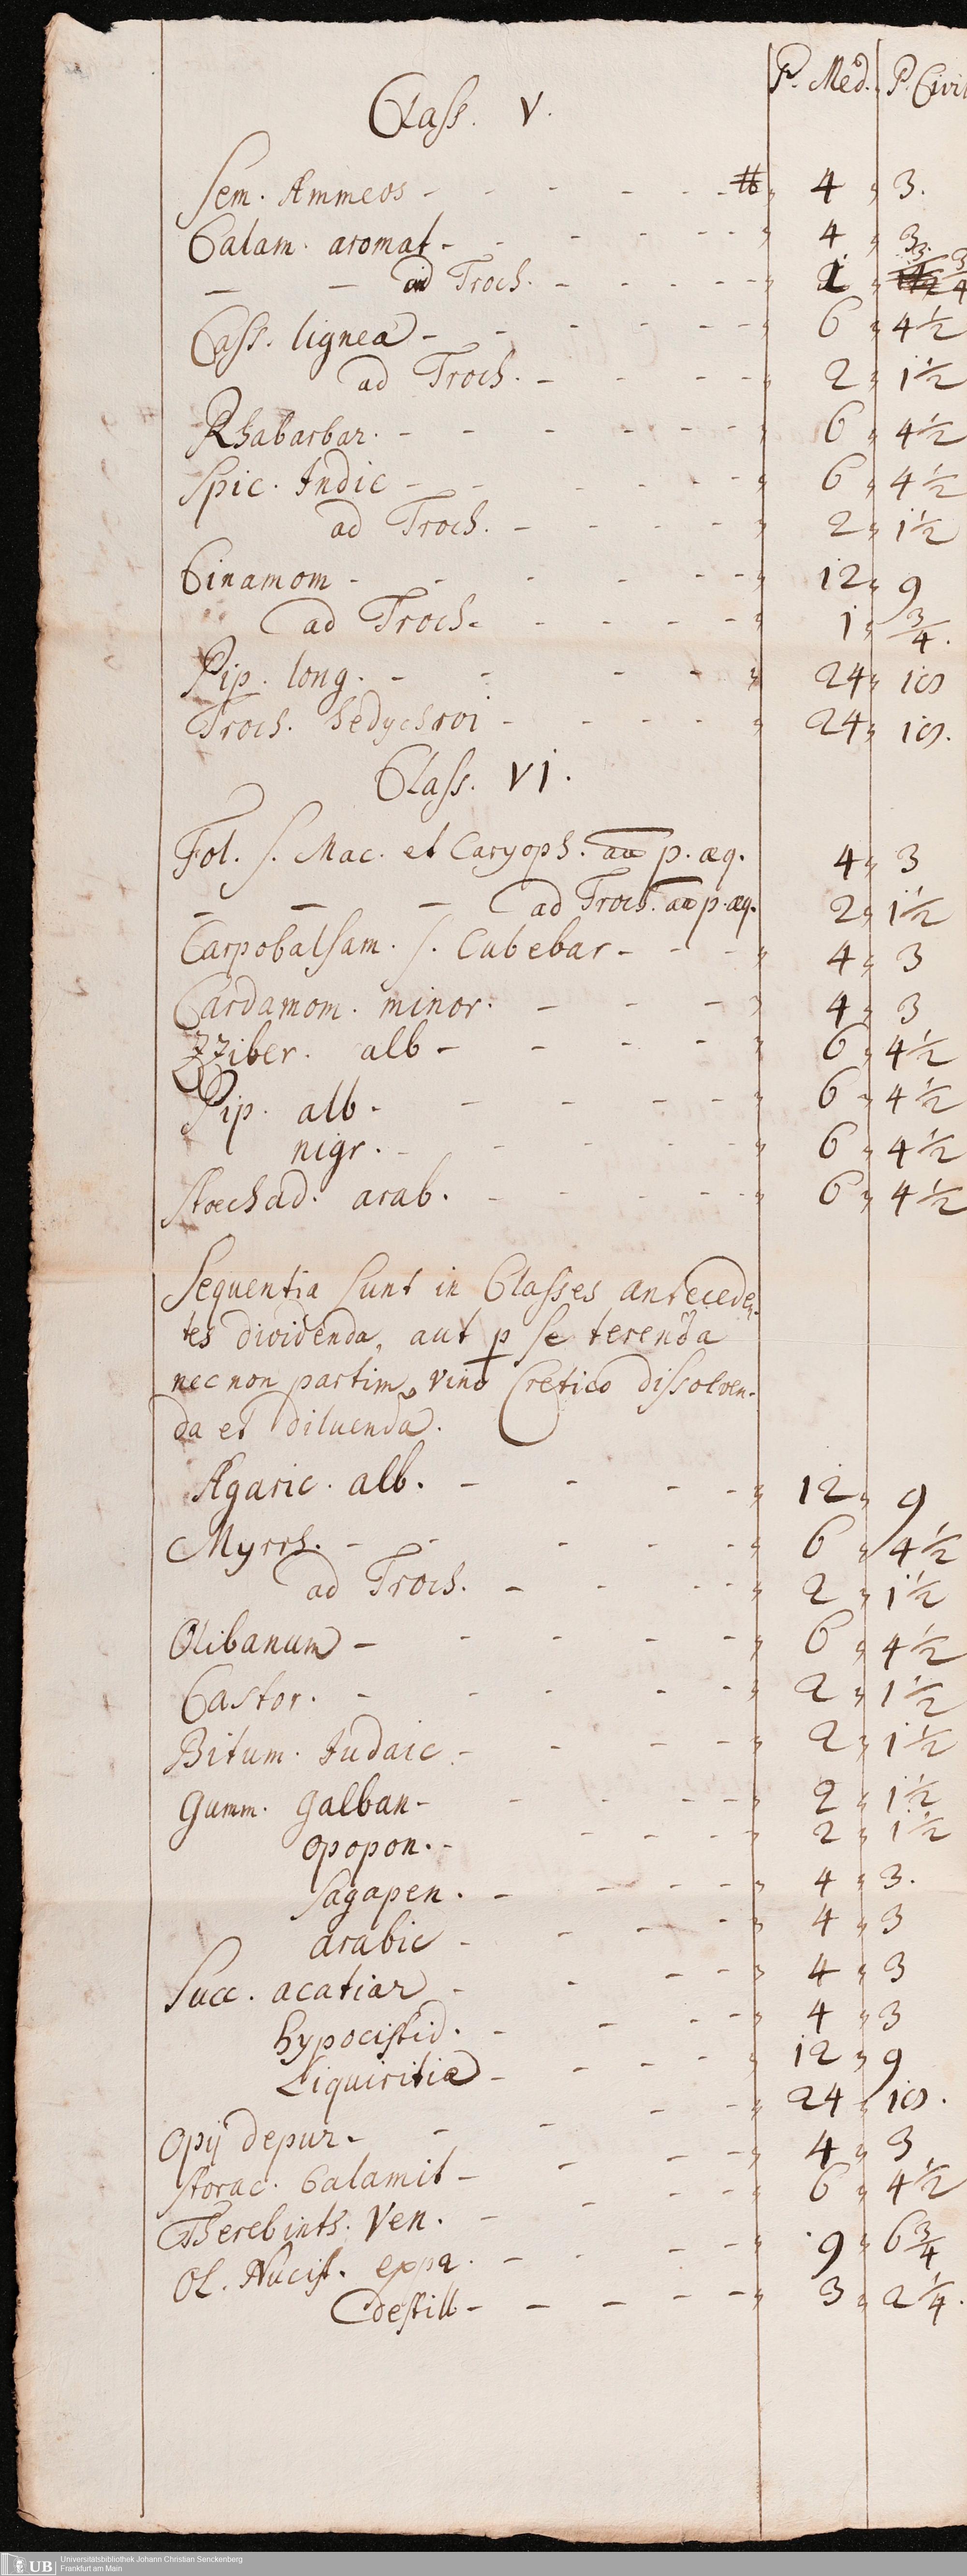 P. Med. P. Civil
Class. V.
Sem. Ammeos - - - - - - ℔ „ 4 „ 3.
Calam. aromat - - - - - - „ 4 „ 3.
— — ad Troch. - - - - - „ 1 „ 3/4
Cass. lignea - - - - - - „ 6 „ 4 1/2
ad Troch. - - - - „ 2 „ 1 1/2
Rhabarbar. - - - - - - „ 6 „ 4 1/2
Spic. Indic - - - - - - „ 6 „ 4 1/2
ad Troch. - - - - „ 2 „ 1 1/2
Cinamom - - - - - - „ 12 „ 9
ad Troch. - - - - „ 1 „ 3/4.
Pip. long. - - - - „ 24 „ 18
Troch. hedychroi - - - - „ 24 „ 18.
Class. VI.
Fol. s. Mac. et Caryoph. aa p. æq. 4 „ 3
— — — ad Troch. aa p. æq. 2 „ 1 1/2
Carpobalsam. s. Cubebar - - - „ 4 „ 3
Cardamom. minor. - - - - „ 4 „ 3
Zziber. alb - - - - - „ 6 „ 4 1/2
Pip. alb. - - - - - „ 6 „ 4 1/2
nigr. - - - - - „ 6 „ 4 1/2
Stoechad. arab. - - - - - „ 6 „ 4 1/2
Sequentia sunt in Classes anteceden-
tes dividenda, aut p se terenda
nec non partim vino Cretico dissolven-
da et diluenda.
Agaric. alb. - - - - „ 12 „ 9
Myrrh. - - - - - - „ 6 „ 4 1/2
ad Troch. - - - - „ 2 „ 1 1/2
Olibanum - - - - - „ 6 „ 4 1/2
Castor. - - - - - „ 2 „ 1 1/2
Bitum. Judaic - - - - - „ 2 „ 1 1/2
Gumm. Galban - - - - - „ 2 „ 1 1/2
opopon. - - - - - „ 2 „ 1 1/2
Sagapen. - - - - - „ 4 „ 3.
arabic - - - - „ 4 „ 3
Succ. acatiar - - - - „ 4 „ 3
hypocistid. - - - - „ 4 „ 3
Liquiritiæ - - - - „ 12 „ 9
Opij depur. - - - - - „ 24 „ 18.
Storac. Calamit - - - - „ 4 „ 3
Therebinth. Ven. - - - - „ 6 „ 4 1/2
Ol. Nucist. expr. - - - - „ 9 „ 6 3/4
destill - - - - - „ 3 „ 2 1/4.
UB Universitätsbibliothek Johann Christian Senckenberg
Frankfurt am Main